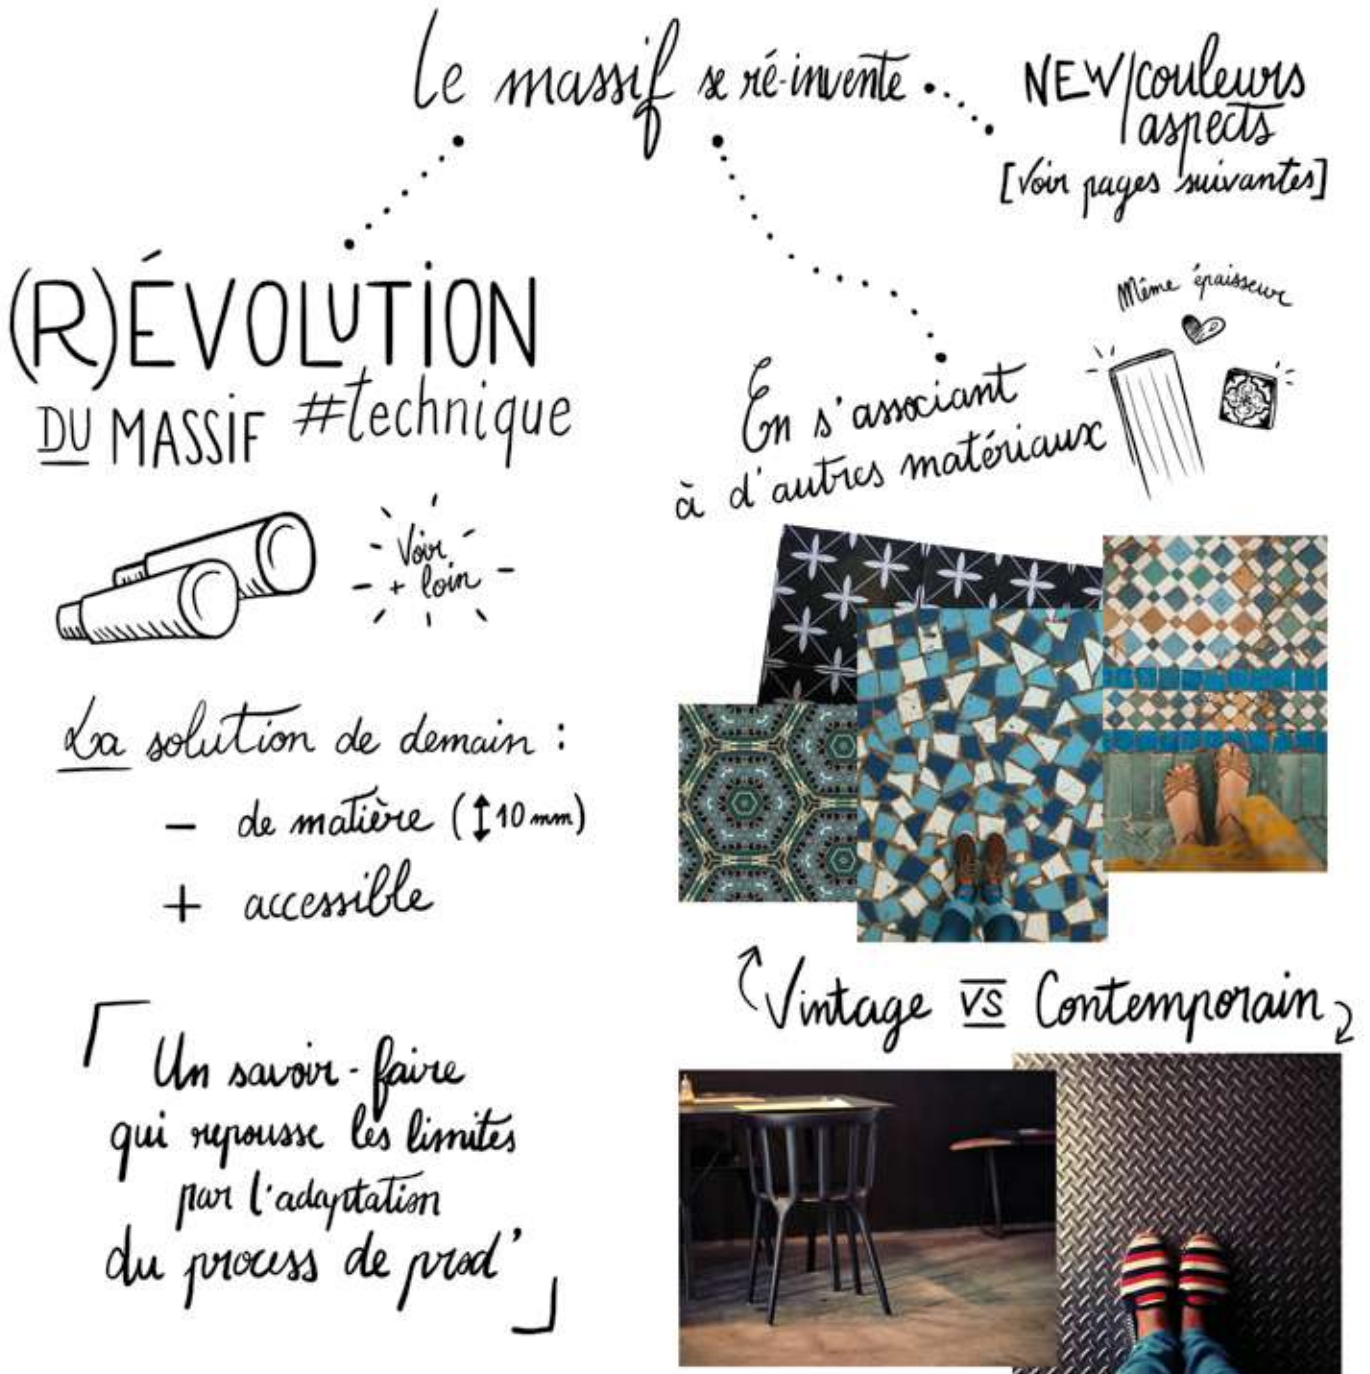 Le massif se ré-invente
NEW/couleurs
aspects
[Voir pages suivantes]
(R)ÉVOLUTION
DU MASSIF #technique
Voir
+ loin
La solution de demain :
- de matière (↕10 mm)
+ accessible
Un savoir-faire
qui repousse les limites
par l'adaptation
du process de prod'
Même épaisseur
En s'associant
à d'autres matériaux
Vintage VS Contemporain